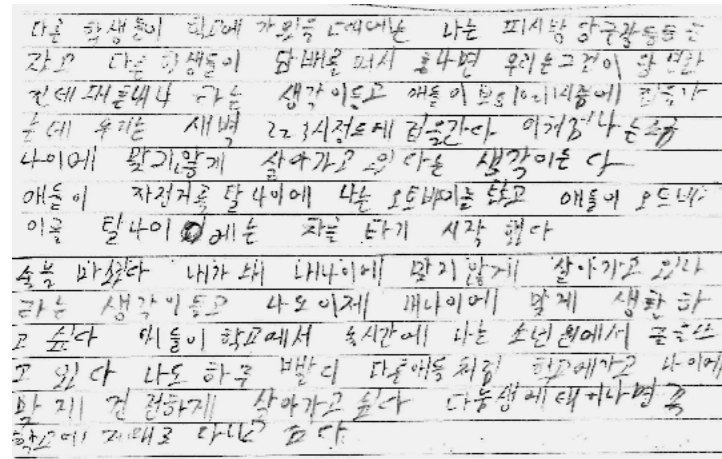 다른 학생들이 학교에 가있을 때에는 나는 피시방 당구장등을
갔고 다른 학생들이 담배를 펴서 혼나면 우리는 그것이 당연한
건데 왜 혼내나 라는 생각이들고 애들이 보통 10시쯤에 집을가
는데 우리는 새벽 2 2 3시정도에 집을간다 이처럼 나는
나이에 맞지않게 살아가고 있다는 생각이든다
애들이 자전거를 탈 나이에 나는 오토바이를 탔고 애들이 오토바
이를 탈 나이에는 차를 타기 시작 했다
술을 마셨다 내가 왜 내나이에 맞지않게 살아가고 있나
라는 생각이들고 나도 이제 내나이에 맞게 생활 하
고 싶다 애들이 학교에서 시간에 나는 소년원에서 글을쓰
고 있다 나도 하루 빨리 다른애들 처럼 학교에가고 나이에
맞게 건전하게 살아가고 싶다 다음생에 태어나면 꼭
학교에 제대로 다니고 싶다